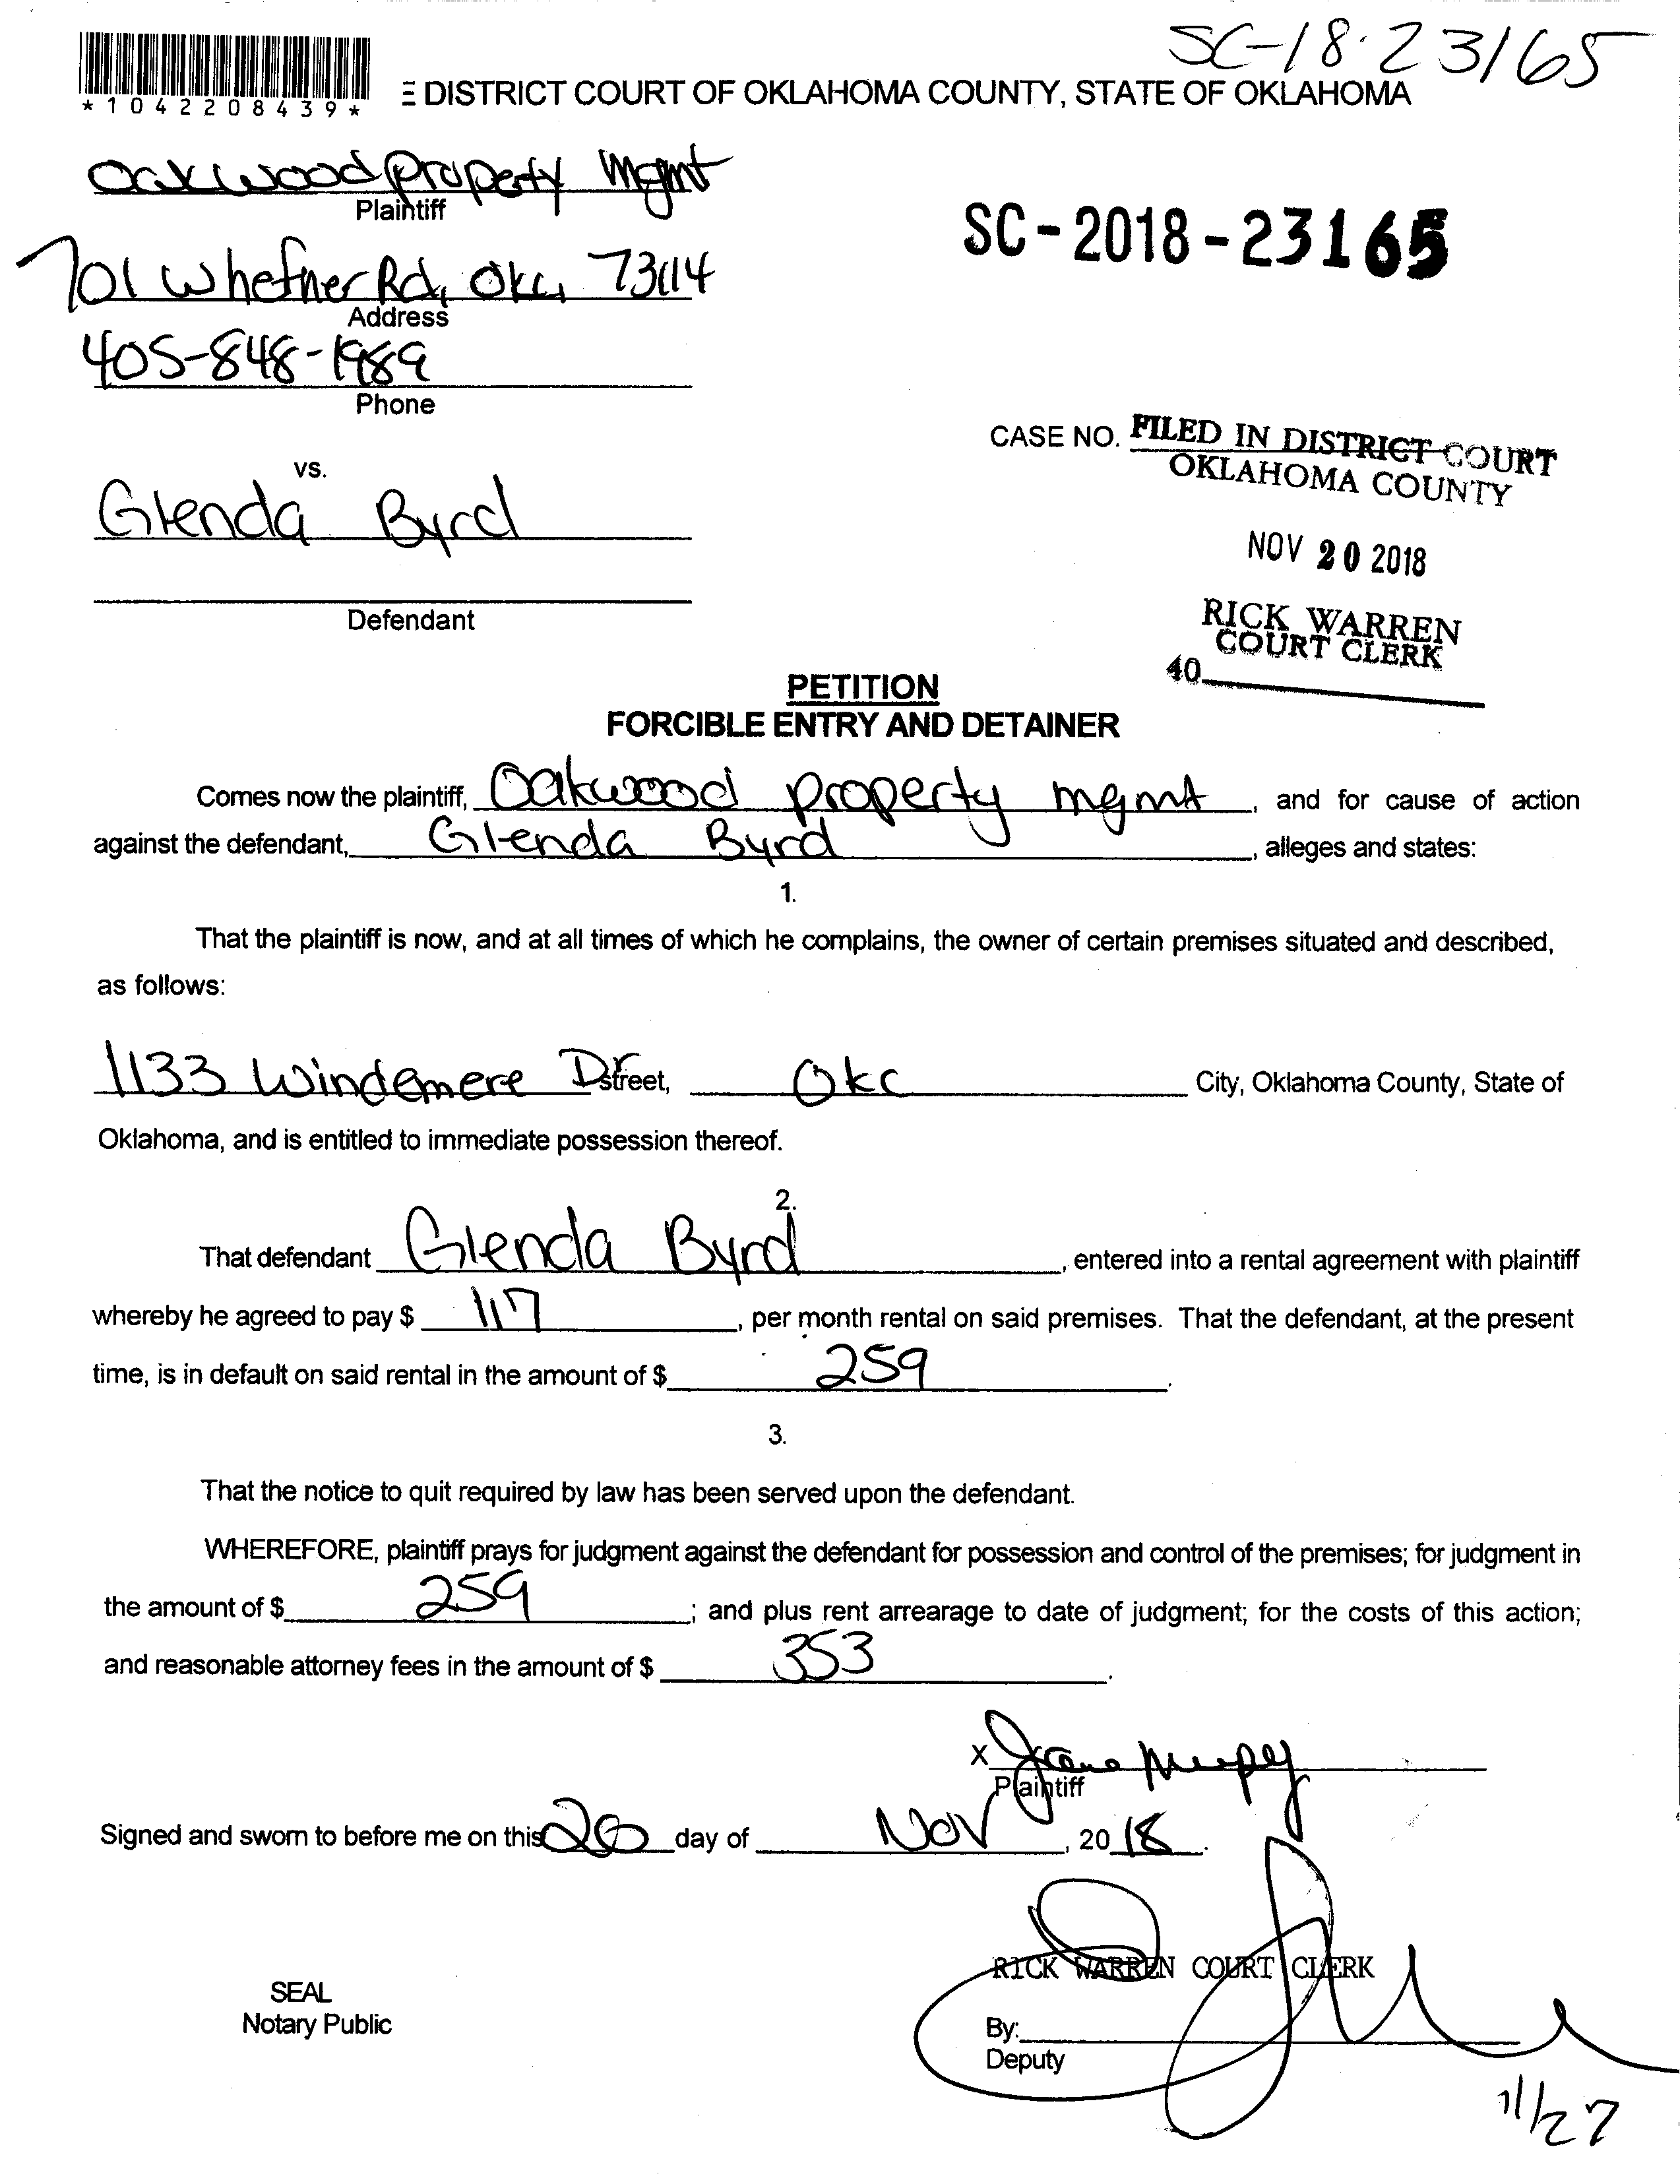 SC-18-23165
*1042208439*
E DISTRICT COURT OF OKLAHOMA COUNTY, STATE OF OKLAHOMA
Oakwood Property Mgmt
Plaintiff
SC-2018-23165
701 Whefner Rd, Okc, 73114
Address
405-848-1989
Phone
CASE NO.
FILED IN DISTRICT COURT
OKLAHOMA COUNTY
vs.
Glenda Byrd
NOV 20 2018
Defendant
RICK WARREN
COURT CLERK
40
PETITION
FORCIBLE ENTRY AND DETAINER
Comes now the plaintiff, Oakwood property mgmt, and for cause of action
against the defendant, Glenda Byrd, alleges and states:
1.
That the plaintiff is now, and at all times of which he complains, the owner of certain premises situated and described,
as follows:
1133 Windemere Dr Street, Okc City, Oklahoma County, State of
Oklahoma, and is entitled to immediate possession thereof.
2.
That defendant Glenda Byrd, entered into a rental agreement with plaintiff
whereby he agreed to pay $ 117, per month rental on said premises. That the defendant, at the present
time, is in default on said rental in the amount of $ 259.
3.
That the notice to quit required by law has been served upon the defendant.
WHEREFORE, plaintiff prays for judgment against the defendant for possession and control of the premises; for judgment in
the amount of $ 259; and plus rent arrearage to date of judgment; for the costs of this action;
and reasonable attorney fees in the amount of $ 353.
X
Plaintiff
Signed and sworn to before me on this 20 day of Nov, 2018.
RICK WARREN COURT CLERK
SEAL
Notary Public
By:
Deputy
11/27